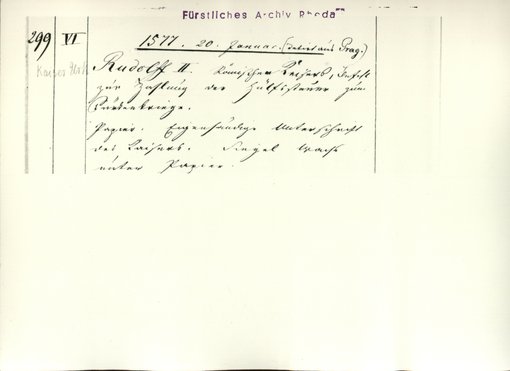 Fürstliches Archiv Rheda
299 VI 1577. 20. Januar. (datiert aus Prag.)
Kaiser Rudolff II. Römischer Kaisers, Befehl
zur Zahlung der Hülfssteuer zum
Türkenkriege.
Papier. Eigenhändige Unterschrift
des Kaisers. Siegel Wachs
unter Papier.